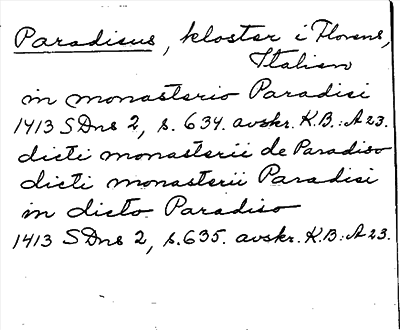 Paradisus, kloster i Florens,
Italien
in monasterio Paradisi
1413 SDns 2, s. 634. avskr. K.B.: A 23.
dicti monasterii de Paradiso
dicti monasterii Paradisi
in dicto Paradiso
1413 SDns 2, s. 635. avskr. K.B.: A 23.